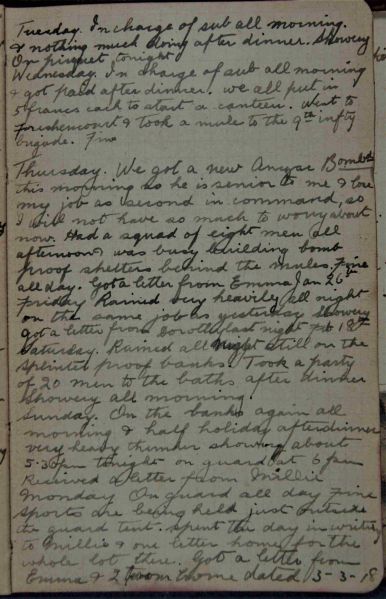 Tuesday. In charge of sub all morning.
& nothing much doing after dinner. Showery
On picquet tonight
Wednesday. In charge of sub all morning
& got paid after dinner. we all put in
5 francs each to start a canteen. Went to
& took a mule to the 9th infty
brigade. Fine
Thursday. We got a new Bombdr
this morning so he is senior to me & lose
my job as second in command, so
I will not have so much to worry about
now. Had a squad of eight men all
afternoon & was busy building bomb
proof shelters behind the mules. Fine
all day. Got a letter from Emma Jan 26th
Friday Rained very heavily all night
on the same job as yesterday showery
got a letter from Dorothy last night Feb 18th
Saturday. Rained all night still on the
splinter proof banks. Took a party
of 20 men to the baths after dinner
showery all morning.
Sunday. On the banks again all
morning & half holiday after dinner
very heavy thunder showers about
5-30pm tonight on guard at 6 pm
Received a letter from Millie
Monday On guard all day Fine
sports are being held just outside
the guard tent. Spent the day in writing
to Millie & one letter home for the
whole lot there. Got a letter from
Emma & 2 from home dated 5-3-18